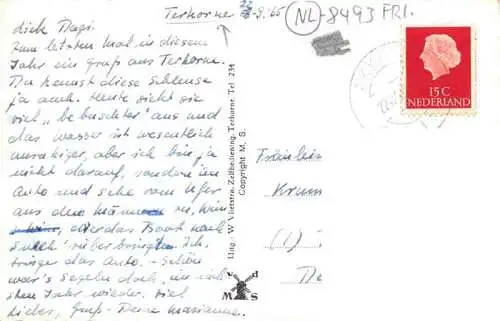 Terkorne 22.9.65
NL-8493 FRI.
Dick Dagi.
Zum letzten Mal in diesem
Jahr ein Gruß aus Terkorne.
Du kennst diese Schleuse
ja auch. Heute sieht sie
viel „bebuschter" aus und
das Wasser ist wesentlich
unruhiger, aber ich bin ja
nicht darauf, sondern im
Auto und sehe vom Ufer
aus den Männern zu, wenn
das Boot nach
rüberbringen. Ich
bringe das Auto. – Schön
war's Segeln doch, im näch-
sten Jahr wieder. Viel
liebes, Gruß – Deine Marianne.
Uitg.: W Vlietstra, Zelfbediening, Terhorne, Tel 234
Copyright M. S.
v d
M S
15 C
NEDERLAND
Fräulein
Krum
(1)